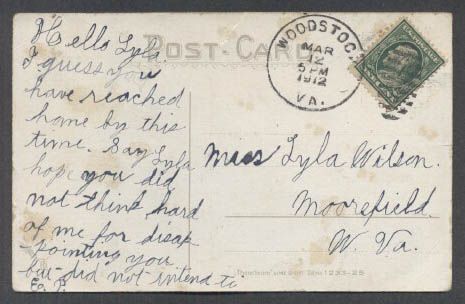 Hello Lyla
I guess you
have reached
home by this
time. Say Lyla
hope you did
not think hard
of me for disap-
-pointing you
but did not intend to
Co. P.
POST-CARD
WOODSTOC
MAR
12
5 PM
1912
VA.
Miss Lyla Wilson.
Moorefield
W. Va.